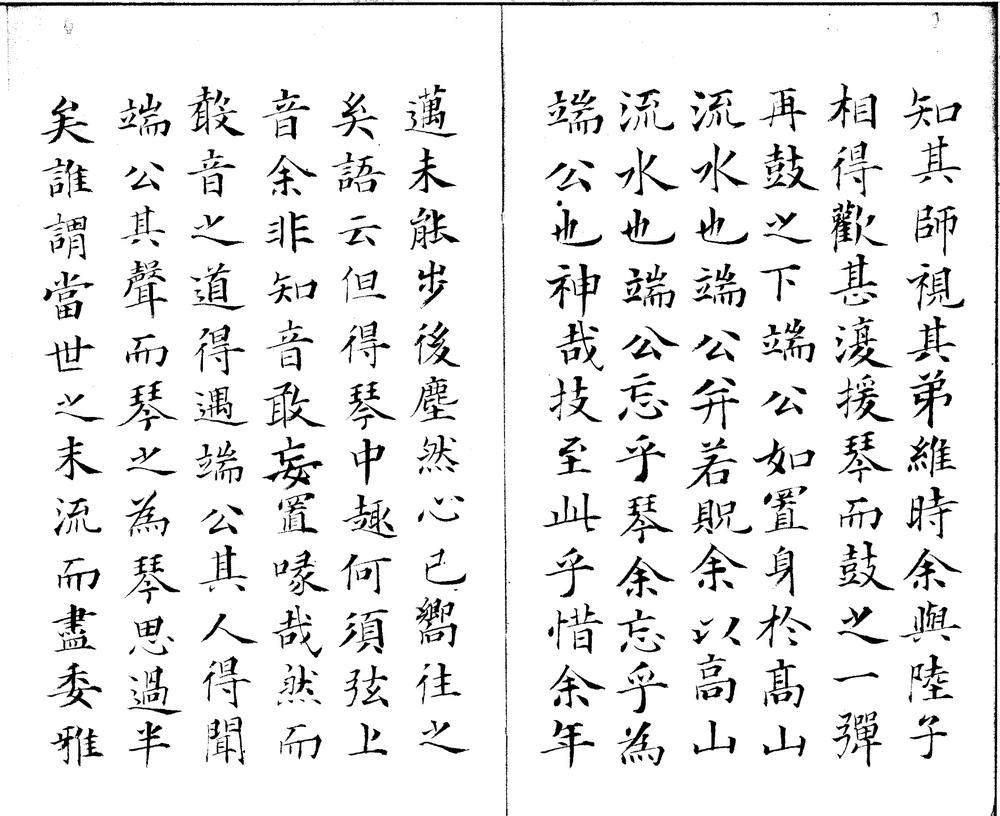 知其師視其弟維時余與陸子
相得歡甚濅援琴而鼓之一彈
再鼓之下端公如置身於髙山
流水也端公弁若貺余以高山
流水也端公忘乎琴余忘乎為
端公也神哉技至此乎惜余年
邁未能步後塵然心已嚮往之
矣語云但得琴中趣何須弦上
音余非知音敢妄置喙哉然而
聲音之道得遇端公其人得聞
端公其聲而琴之為琴思過半
矣誰謂當世之末流而盡委雅